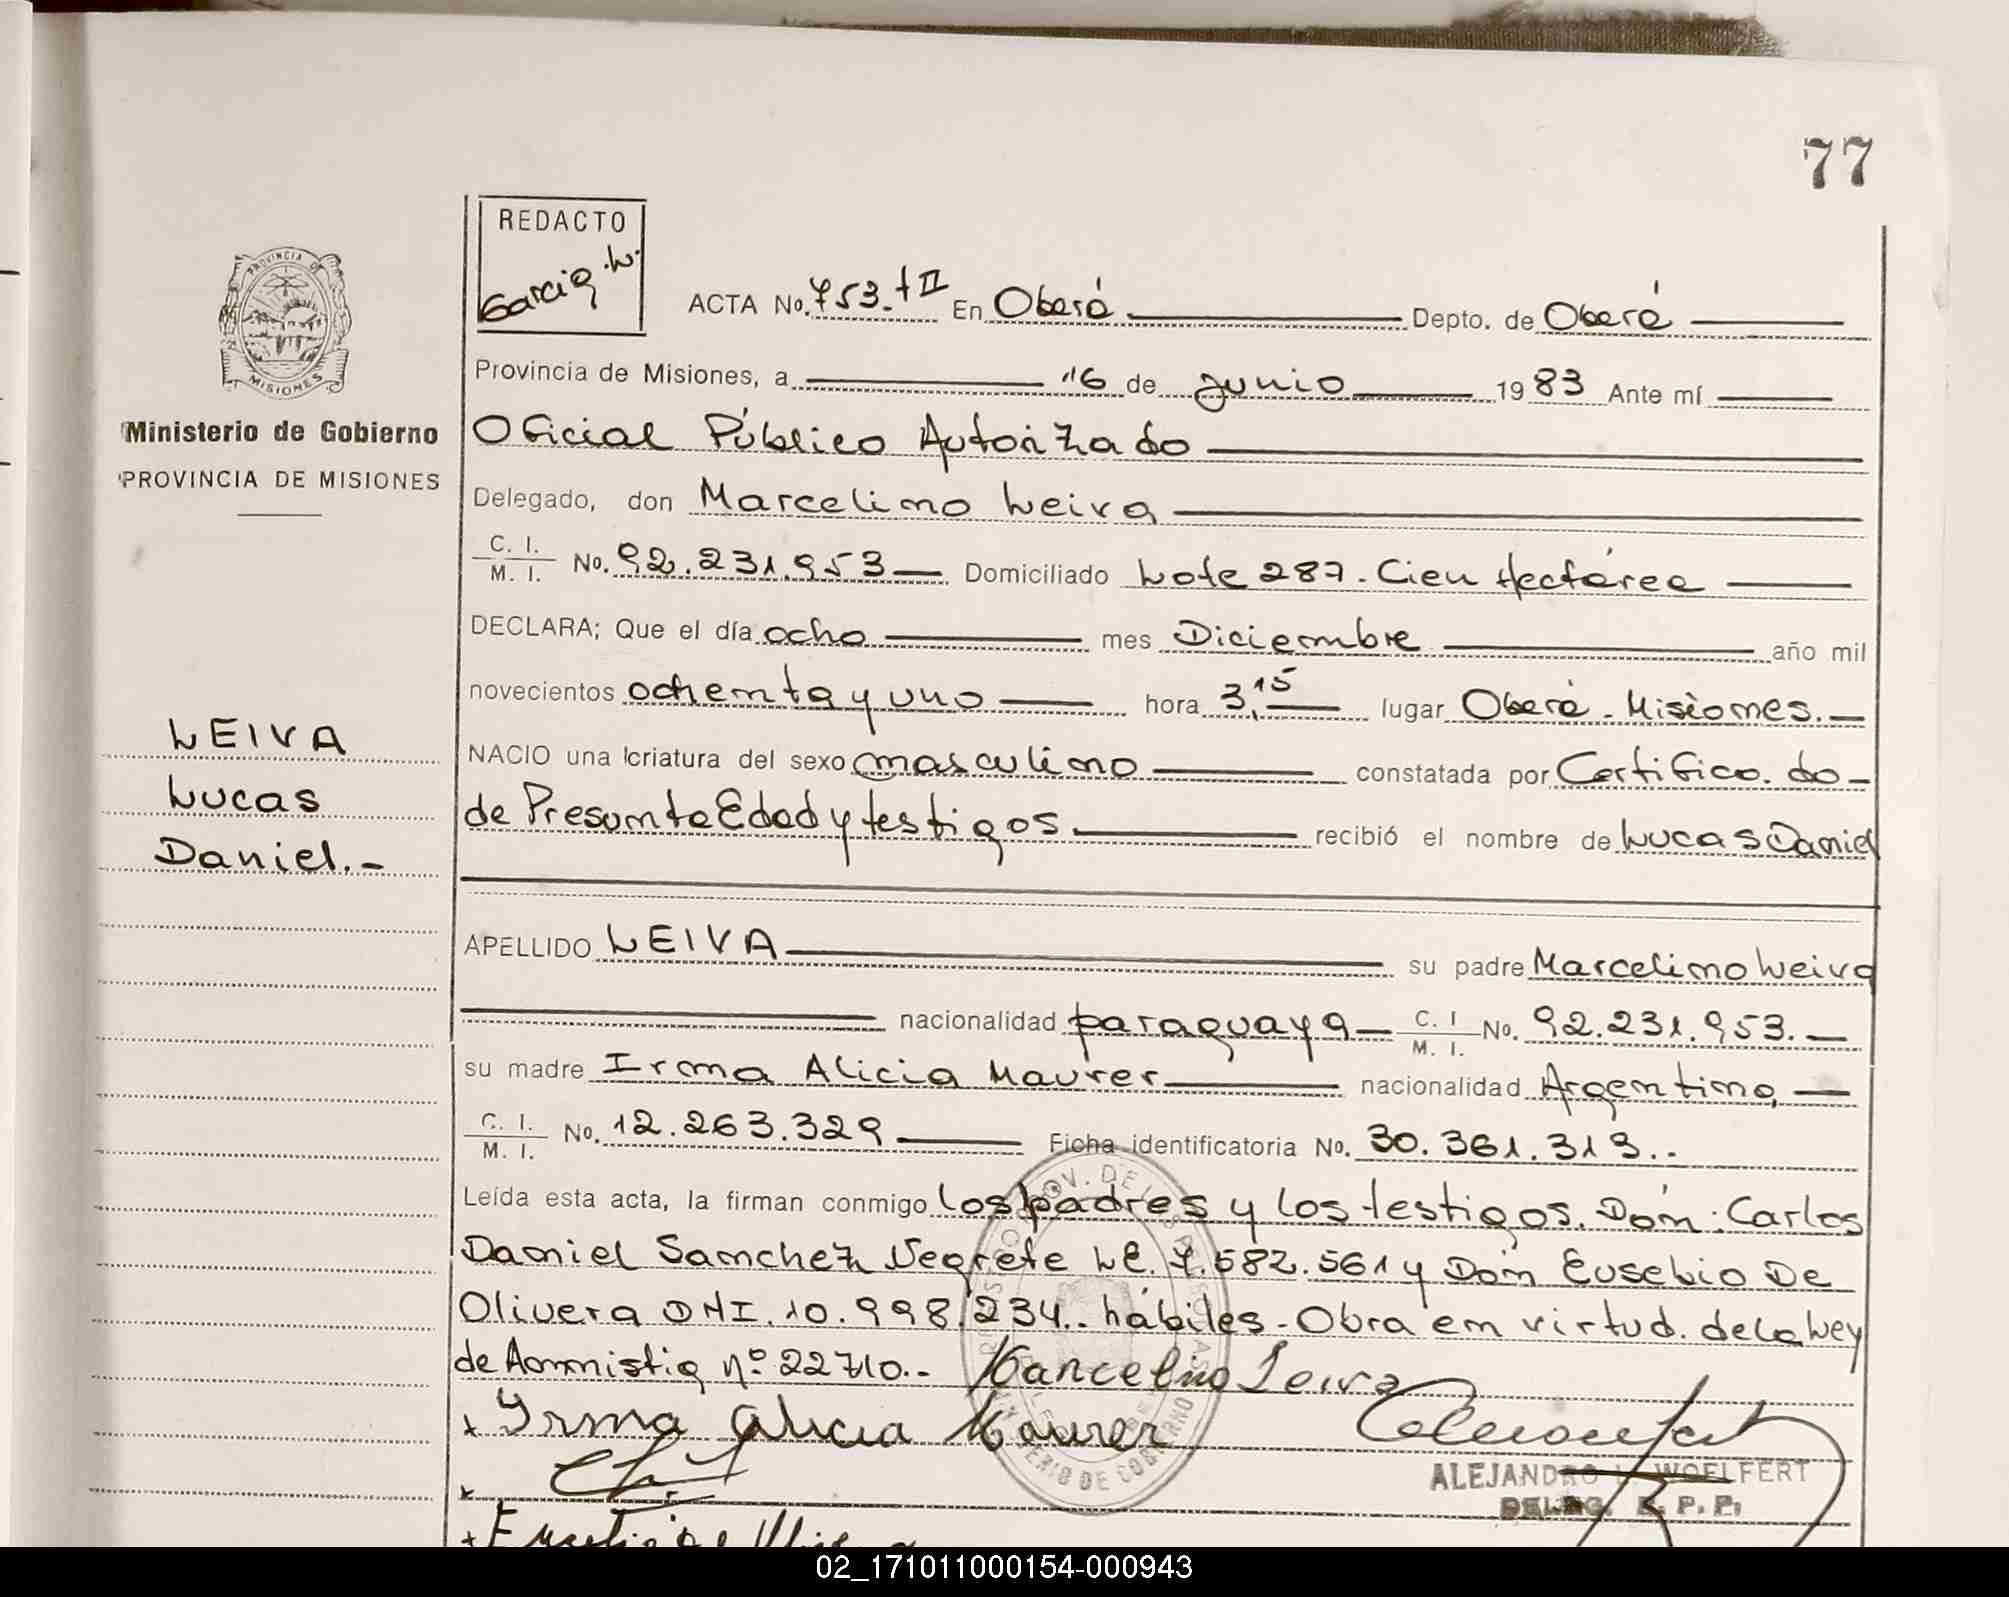 77
REDACTO
Garcia W.
ACTA No. 753.tII En Oberá Depto. de Oberá
PROVINCIA DE
MISIONES
Ministerio de Gobierno
PROVINCIA DE MISIONES
Provincia de Misiones, a 16 de junio 1983 Ante mí
Oficial Público Autorizado
Delegado, don Marcelino Leiva
C. I.
M. I. No. 92.231.953 Domiciliado Lote 287. Cien Hectárea
DECLARA; Que el día ocho mes Diciembre año mil
novecientos ochenta y uno hora 3,15 lugar Oberá - Misiones.-
LEIVA
Lucas
Daniel.-
NACIO una criatura del sexo masculino constatada por Certifico. do-
de Presunta Edad y testigos recibió el nombre de Lucas Daniel
APELLIDO LEIVA su padre Marcelino Leiva
nacionalidad paraguaya C. I
M. I. No. 92.231.953.-
su madre Irma Alicia Maurer nacionalidad Argentina
C. I.
M. I. No. 12.263.329 Ficha identificatoria No. 30.361.313..
Leída esta acta, la firman conmigo los padres y los testigos. Dón. Carlos
Daniel Sanchez Negrete LE. 7.582.561 y Dón Eusebio De
Olivera DNI. 10.998.234.. hábiles - Obra en virtud. de la Ley
de Amnistia nº 22710.- Marcelino Leiva
x Irma Alicia Maurer
ALEJANDRO WOELFERT
DELEG. R. P. P.
02_171011000154-000943